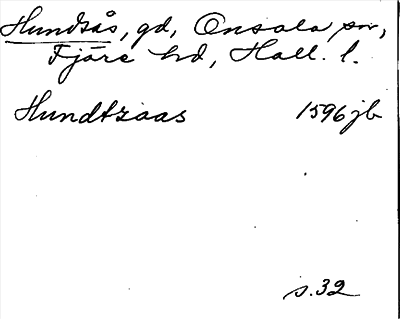 Hundsås, gd, Onsala sn,
Fjäre hd, Hall. l.
Hundtzaas 1596 jb
s. 32